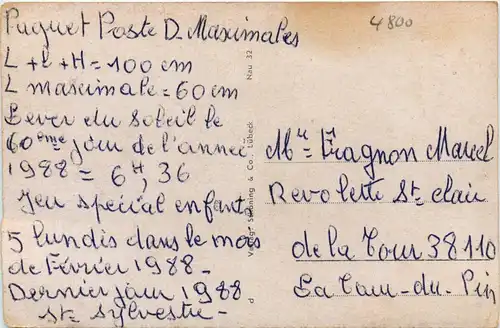 4800
Paquet Poste D. Maximales
L + l + H = 100 cm
L maximale = 60 cm
Lever du soleil le
60eme jour de l'année
1988 = 6H, 36
Jeu special enfant
5 lundis dans le mois
de Février 1988 -
Dernier jour 1988
St. Sylvestre -
Verlag Schöning & Co., Lübeck
Nau 32
d
Mr = Fragnon Marcel
Revolette St. clair
de la Tour 38110
La Tour-du-Pin